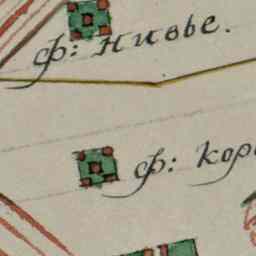 ф: нивье.
ф: коро